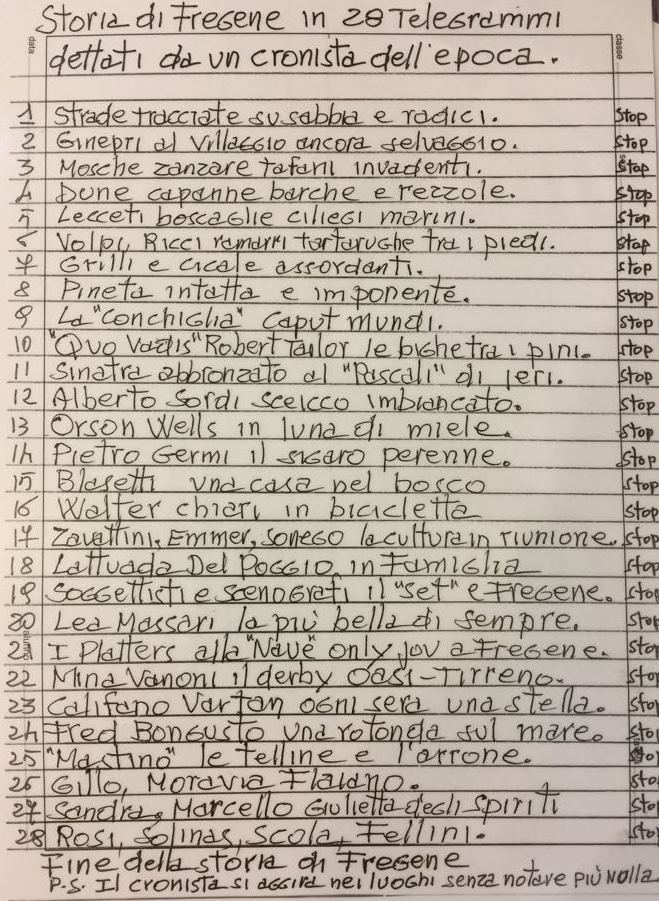 Storia di Fregene in 28 Telegrammi
data
classe
dettati da un cronista dell'epoca.
1 Strade tracciate su sabbia e radici. Stop
2 Ginepri al Villaggio ancora selvaggio. Stop
3 Mosche zanzare tafani invadenti. Stop
4 Dune capanne barche e rezzole. Stop
5 Lecceti boscaglie ciliegi marini. Stop
6 Volpi, Ricci ramarri tartarughe tra i piedi. Stop
7 Grilli e cicale assordanti. Stop
8 Pineta intatta e imponente. Stop
9 La "Conchiglia" caput mundi. Stop
10 "Quo Vadis" Robert Tailor le bighe tra i pini. Stop
11 Sinatra abbronzato al "Pascali" di ieri. Stop
12 Alberto Sordi sceicco imbiancato. Stop
13 Orson Wells in luna di miele. Stop
14 Pietro Germi il sigaro perenne. Stop
15 Blasetti una casa nel bosco Stop
16 Walter chiari in bicicletta Stop
17 Zavattini, Emmer, Sonego la cultura in riunione. Stop
18 Lattuada Del Poggio in Famiglia Stop
19 Soggettisti e scenografi il "set" e Fregene. Stop
20 Lea Massari la più bella di sempre. Stop
21 I Platters alla "Nave" only jov a Fregene. Stop
22 Mina Vanoni il derby Oasi-Tirreno. Stop
23 Califano Vartan ogni sera una stella. Stop
24 Fred Bongusto una rotonda sul mare. Stop
25 "Mastino" le telline e l'arrone. Stop
26 Gillo, Moravia, Flaiano. Stop
27 Sandra, Marcello Giulietta degli Spiriti Stop
28 Rosi, Solinas, Scola, Fellini. Stop
Fine della storia di Fregene
P.S. Il cronista si aggira nei luoghi senza notare più nulla